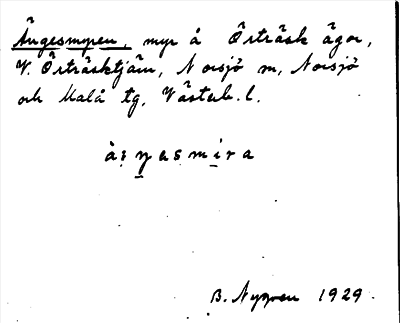 Ängesmyren, myr å Örträsk ägor,
V. Örträsktjärn, Norsjö sn, Norsjö
och Malå tg, Västerb. l.
B. Nygren 1929.